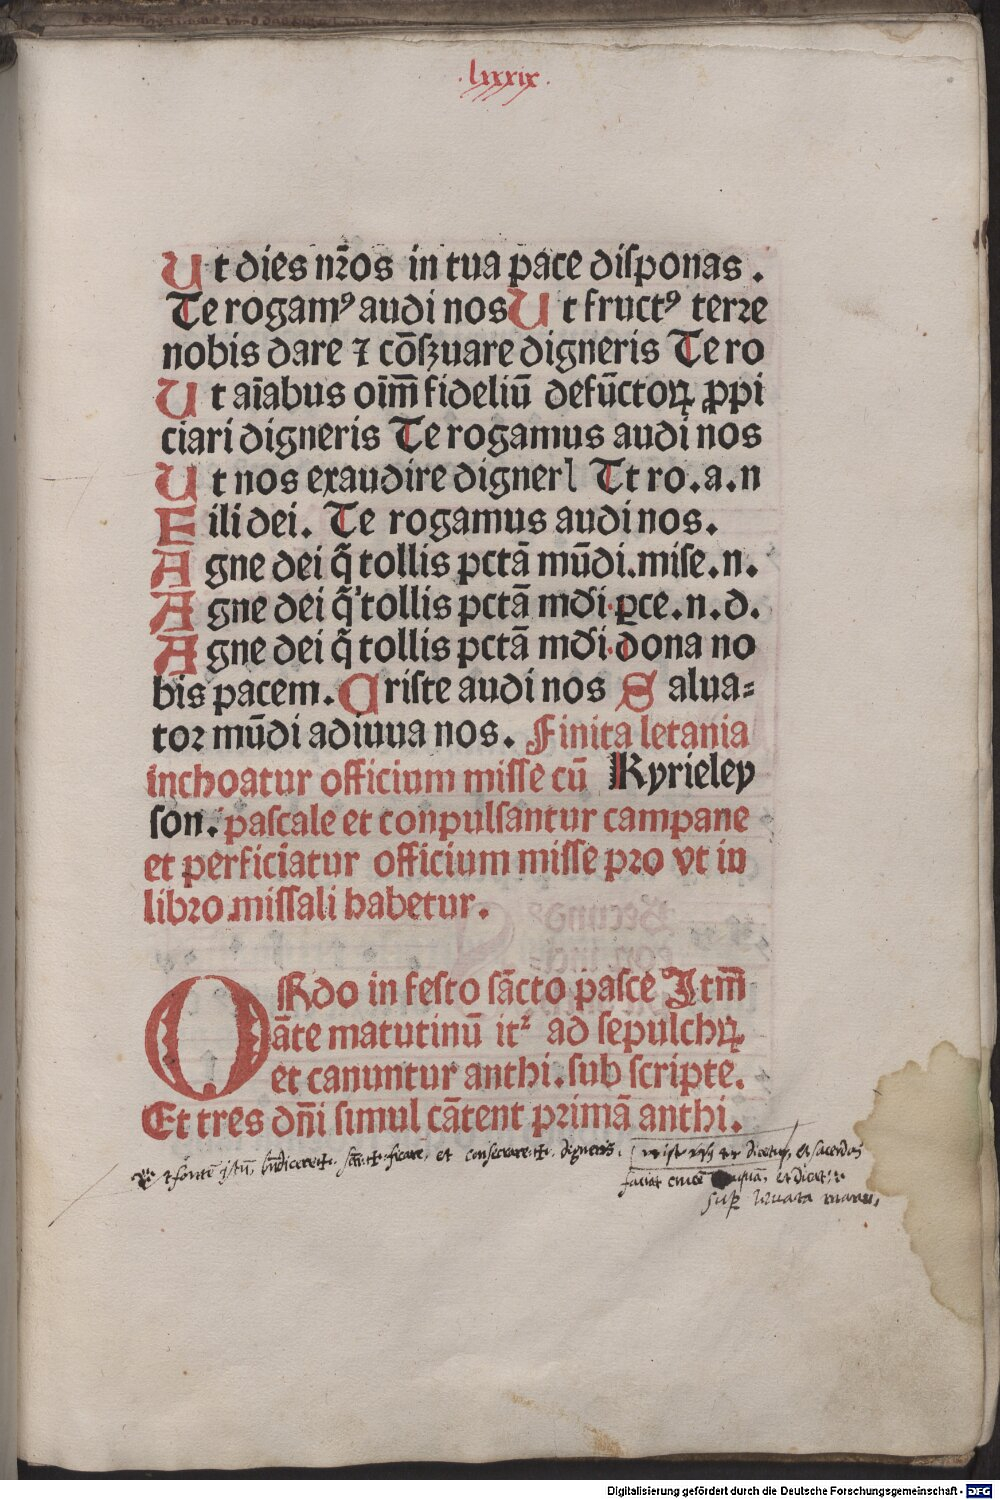 .lxxxix.
Ut dies nr̄os in tua pace disponas .
Te rogamꝰ audi nos Ut fructꝰ terre
nobis dare ⁊ cōẜuare digneris Te ro
Ut aīabus oīm̄ fideliū defūctoꝝ ꝓpi
ciari digneris Te rogamus audi nos
Ut nos exaudire dignerl Tt ro.a.n
Fili dei. Te rogamus audi nos.
Agne dei q̄ tollis pctā mūdi.mise.n.
Agne dei q̄ tollis pctā mdi.ꝑce.n.d.
Agne dei q̄ tollis pctā mdi.dona no
bis pacem. Criste audi nos Salua⸗
tor mūdi adiuua nos. Finita letania
inchoatur officium misse cū Kyrieley
son. pascale et conpulsantur campane
et perficiatur officium misse pro vt in
libro missali habetur.
ORdo in festo sācto pasce Itm̄
āte matutinū itᷣ ad sepulchꝝ
et canuntur anthi.sub scripte.
Et tres dn̄i simul cātent primā anthi.
et consecrare ✠ digneris. dicetur, et sacerdos
faciat et dicit
Digitalisierung gefördert durch die Deutsche Forschungsgemeinschaft - DFG